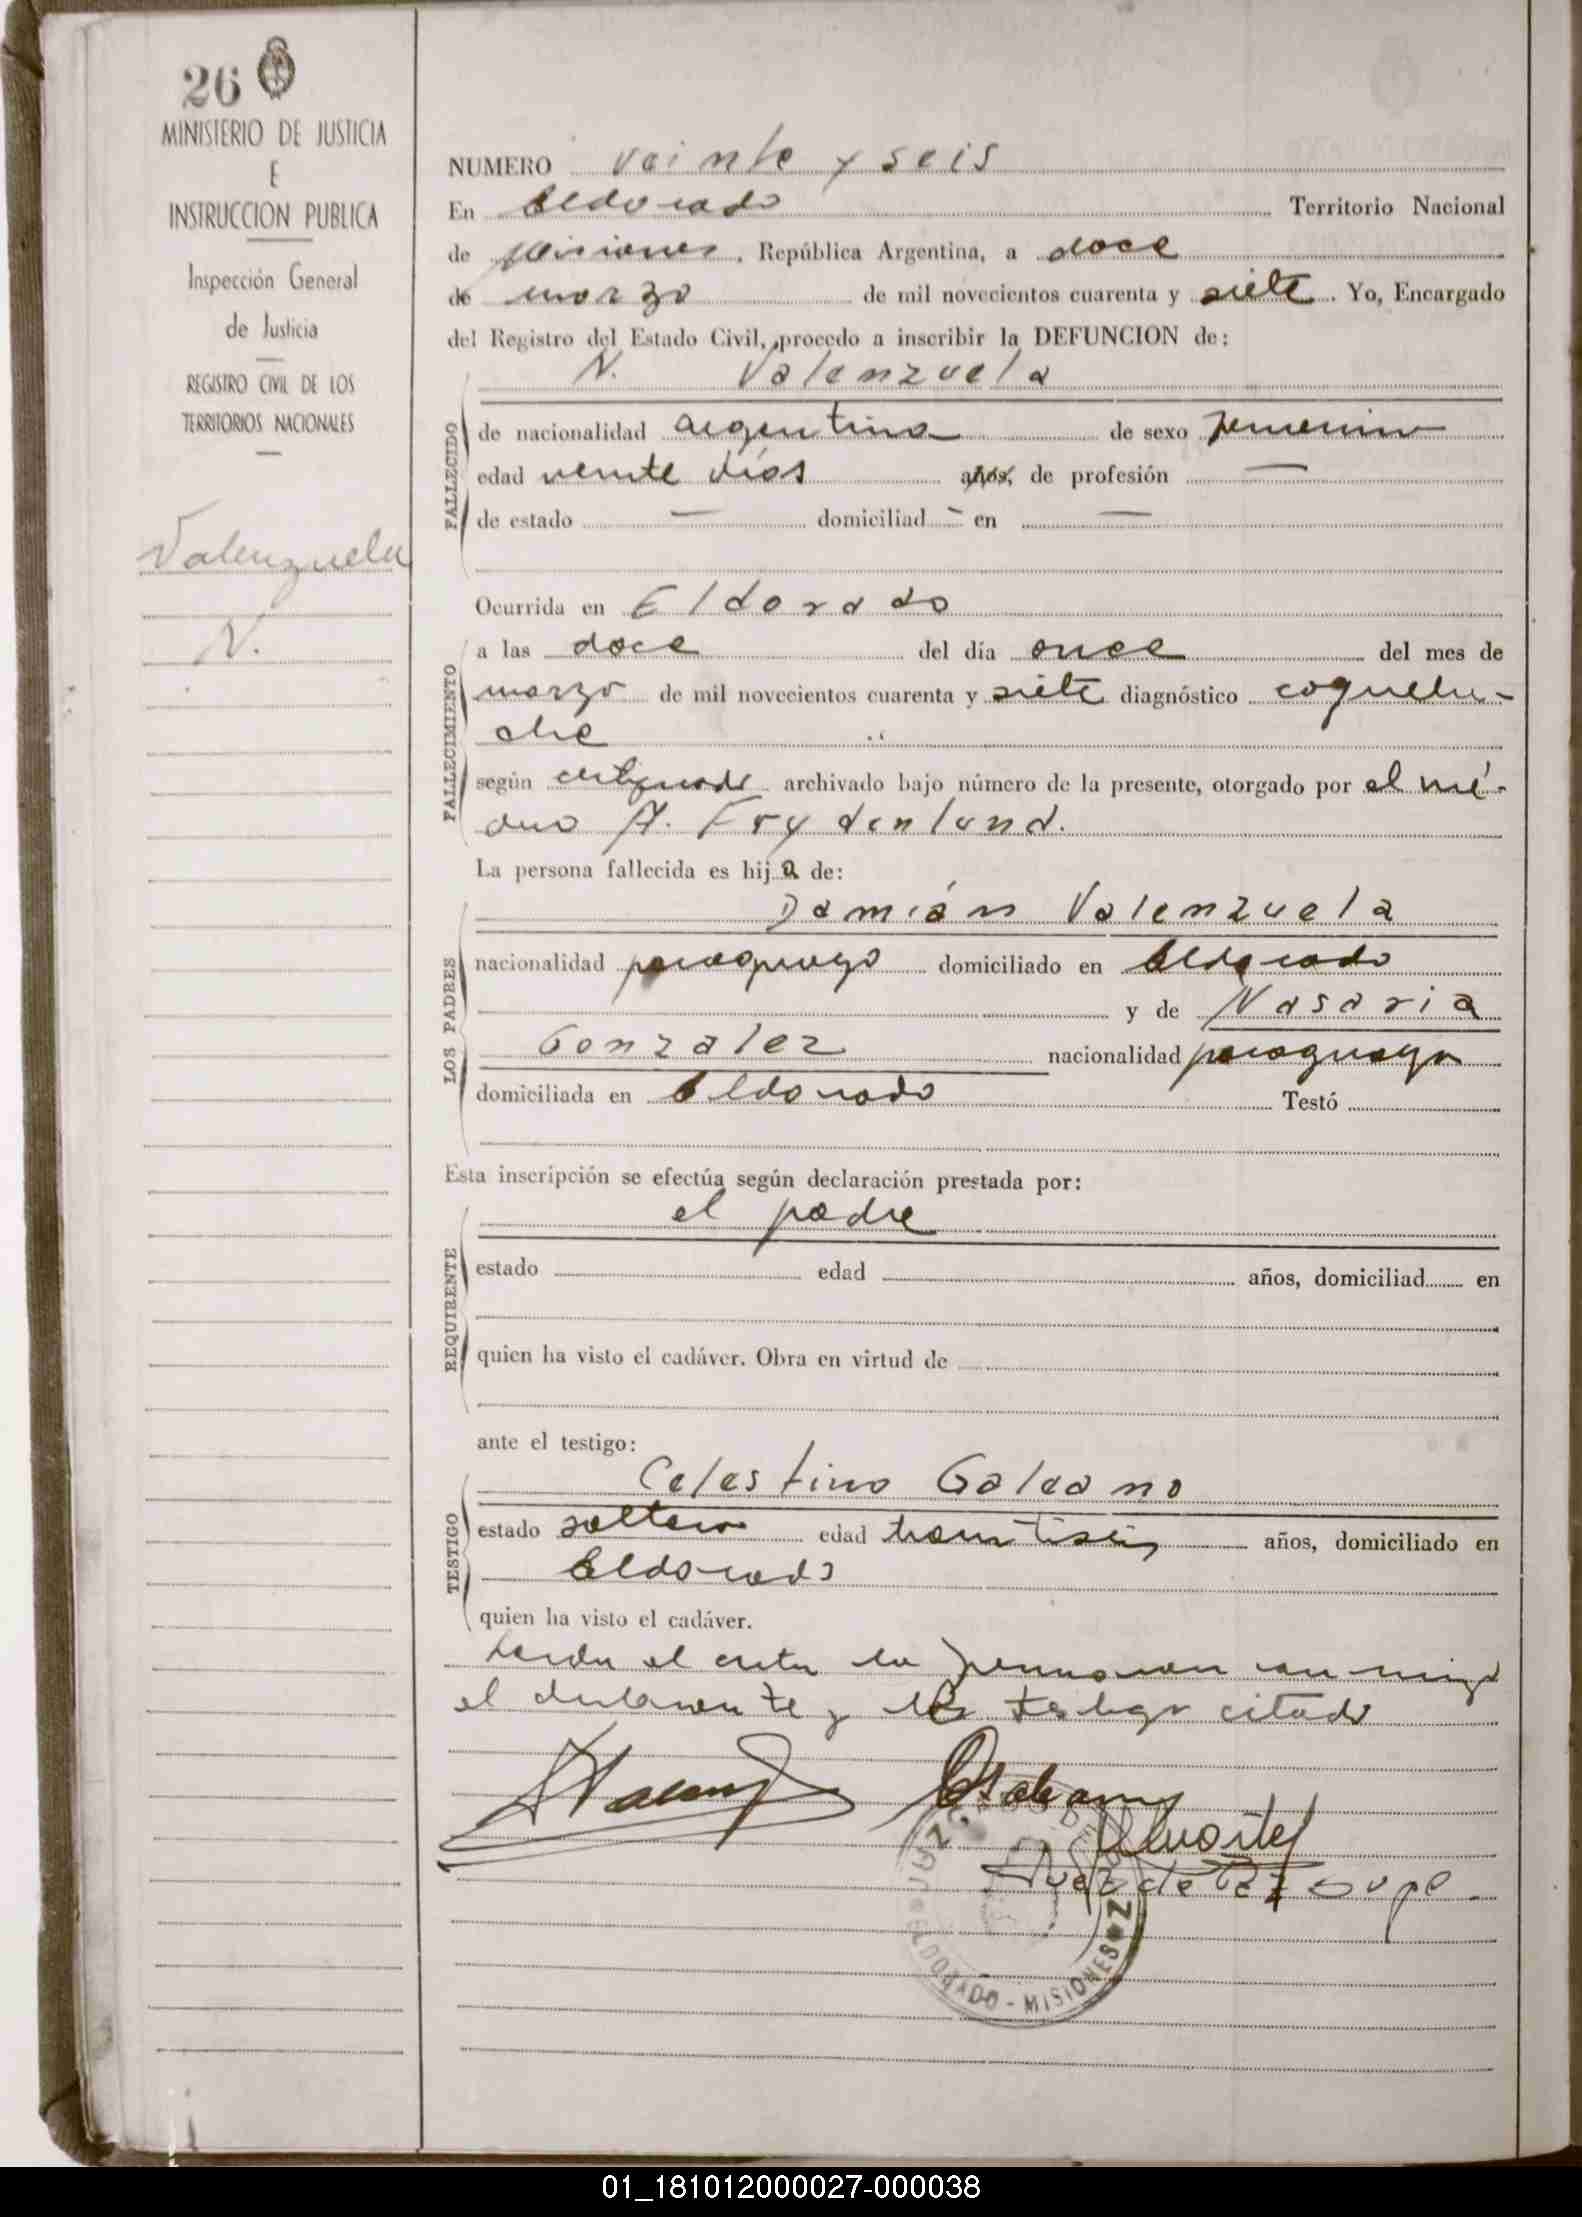 26
MINISTERIO DE JUSTICIA
E
INSTRUCCION PUBLICA
Inspección General
de Justicia
REGISTRO CIVIL DE LOS
TERRITORIOS NACIONALES
Valenzuela
N.
NUMERO veinte y seis
En Eldorado Territorio Nacional
de Misiones, República Argentina, a doce
de marzo de mil novecientos cuarenta y siete. Yo, Encargado
del Registro del Estado Civil, procedo a inscribir la DEFUNCION de:
N. Valenzuela
FALLECIDO
de nacionalidad argentina de sexo femenino
edad veinte días años, de profesión —
de estado — domiciliad - en —
Ocurrida en Eldorado
FALLECIMIENTO
a las doce del día once del mes de
marzo de mil novecientos cuarenta y siete diagnóstico coquelu-
che
según certificado archivado bajo número de la presente, otorgado por el mé-
dico A. Frydenlund.
La persona fallecida es hija de:
LOS PADRES
Damián Valenzuela
nacionalidad paraguayo domiciliado en Eldorado
y de Nasaria
Gonzalez nacionalidad paraguaya
domiciliada en Eldorado Testó
Esta inscripción se efectúa según declaración prestada por:
REQUIRENTE
el padre
estado edad años, domiciliad en
quien ha visto el cadáver. Obra en virtud de
ante el testigo:
TESTIGO
Celestino Galeano
estado soltero edad treintiseis años, domiciliado en
Eldorado
quien ha visto el cadáver.
Leida el acta la firmaron conmigo
el declarante y el testigo citado
Juez de Paz Supl.
ELDORADO - MISIONES
01_181012000027-000038